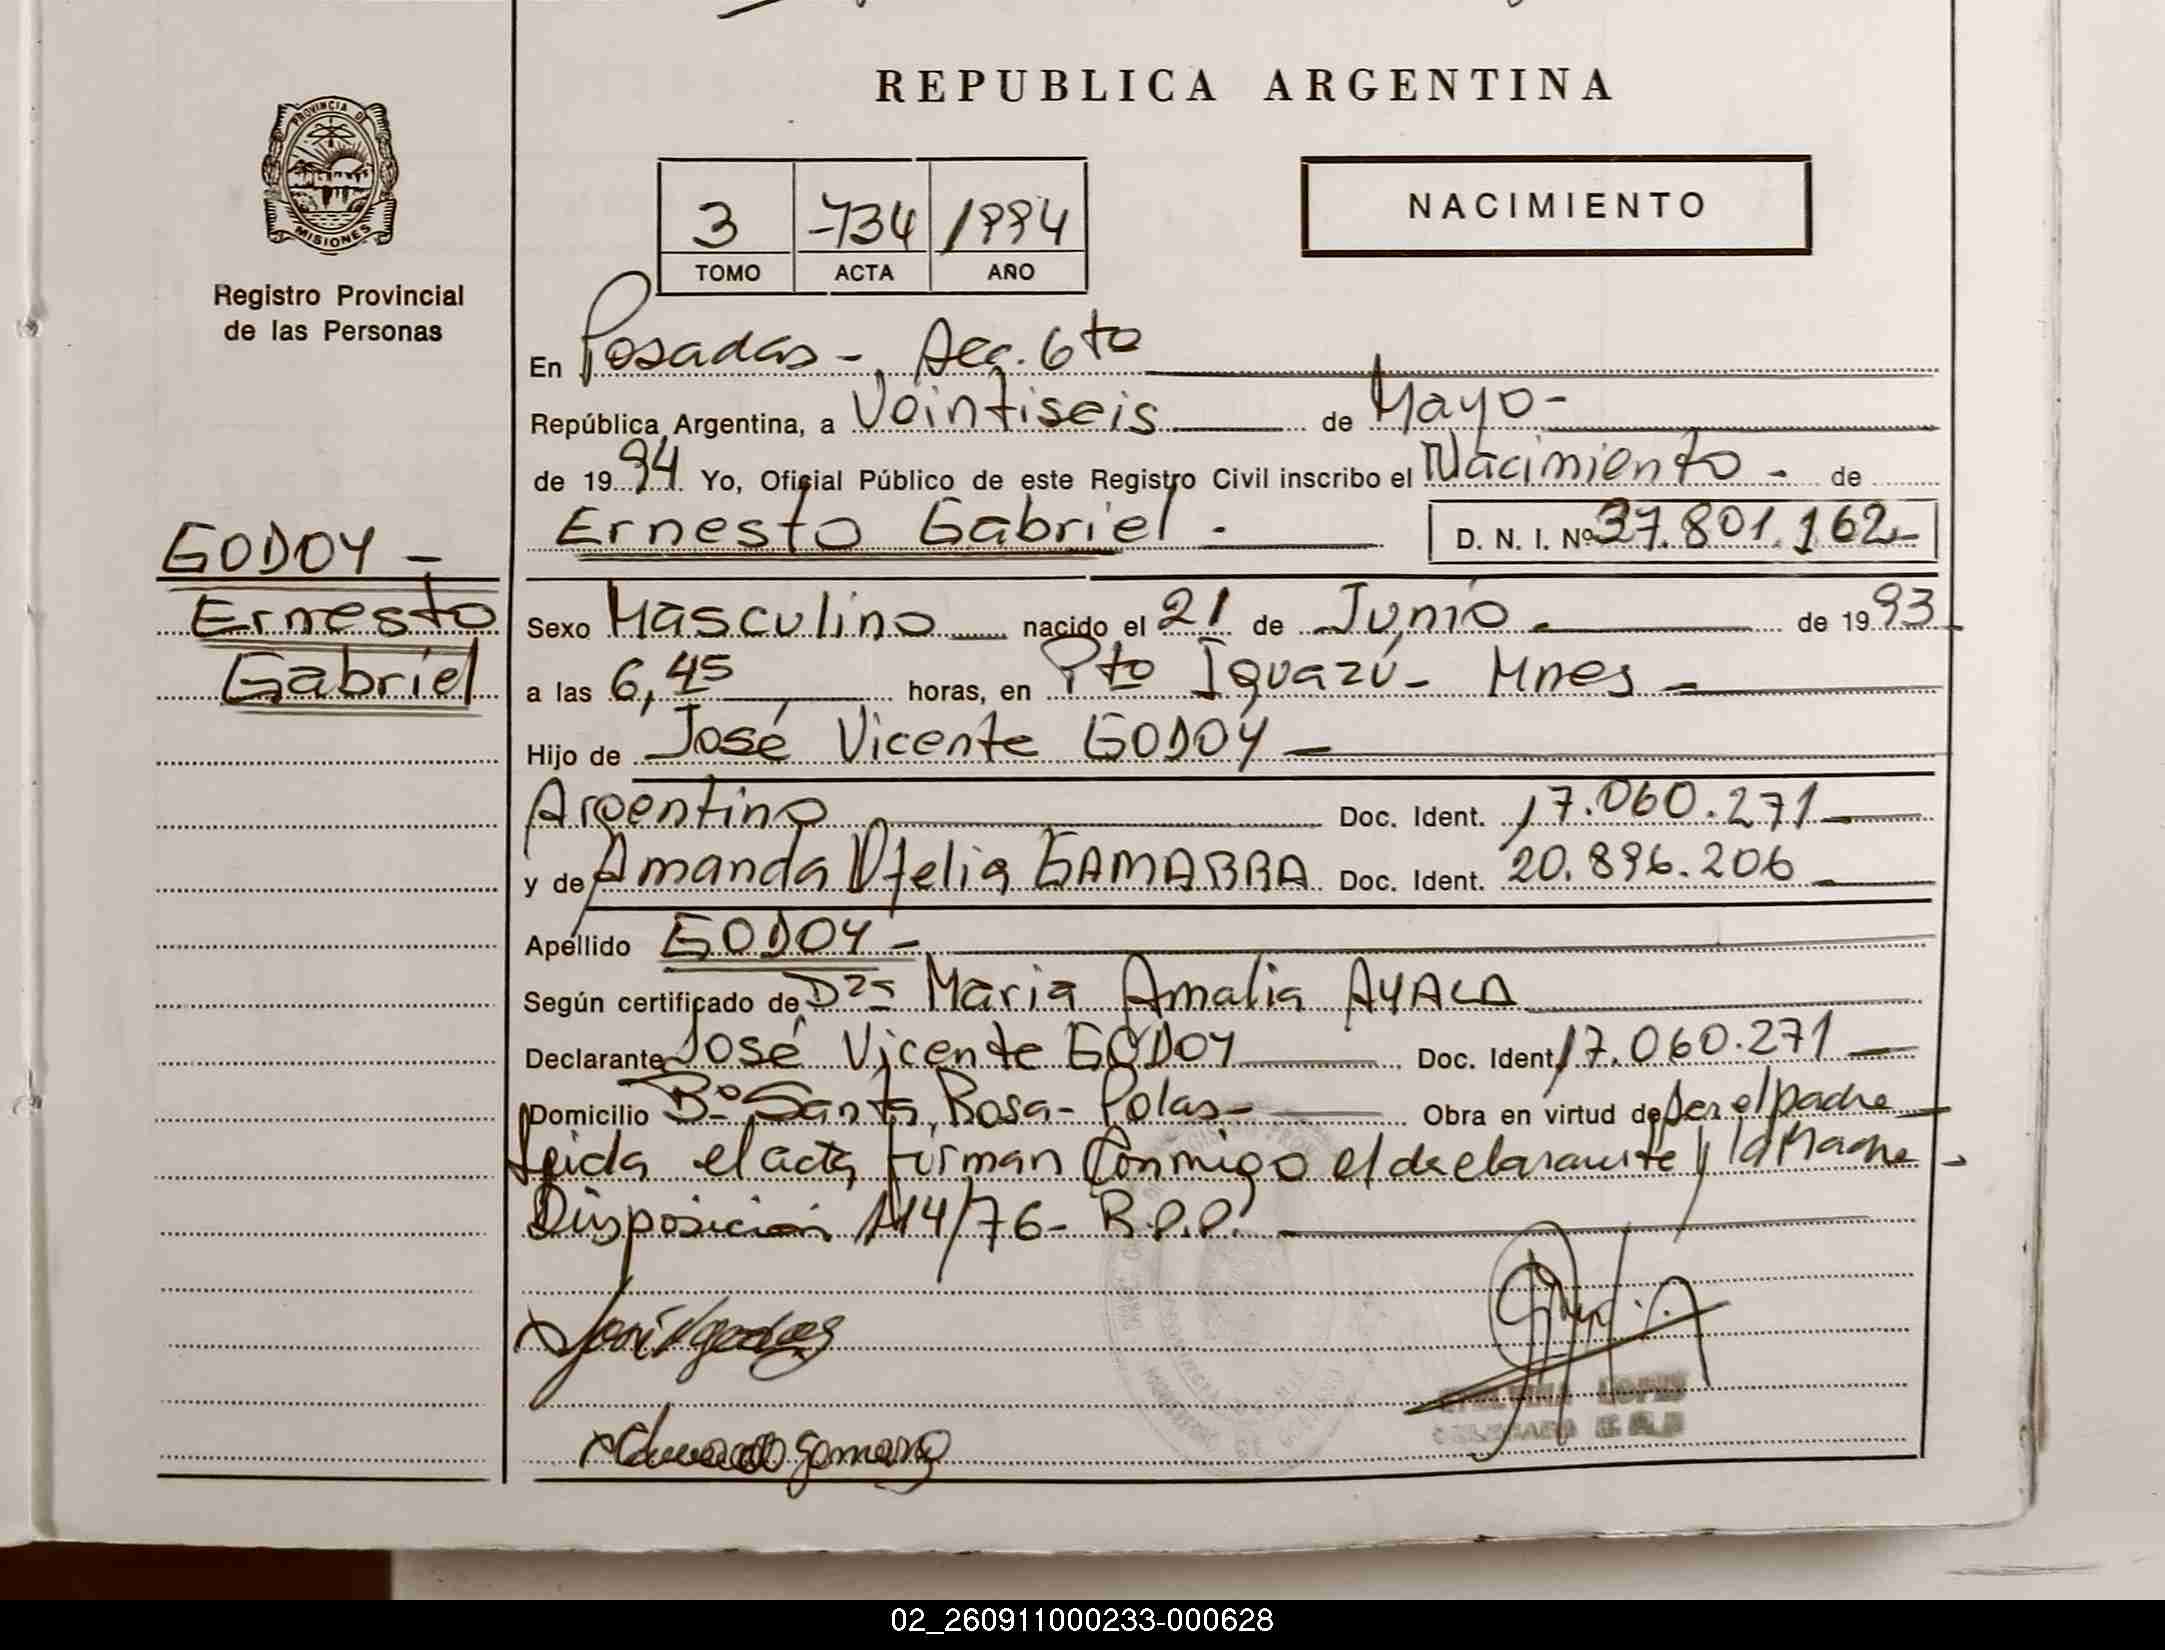 PROVINCIA DE
MISIONES
Registro Provincial
de las Personas
GODOY -
Ernesto
Gabriel
REPUBLICA ARGENTINA
3 734 1994
TOMO ACTA AÑO
NACIMIENTO
En Posadas - Sec. 6to
República Argentina, a Veintiseis de Mayo -
de 1994 Yo, Oficial Público de este Registro Civil inscribo el Nacimiento - de
Ernesto Gabriel - D. N. I. Nº 37.801.162-
Sexo Masculino nacido el 21 de Junio - de 1993
a las 6,45 horas, en Pto Iguazú - Mnes -
Hijo de José Vicente GODOY -
Argentino Doc. Ident. 17.060.271
y de Amanda Ofelia GAMARRA Doc. Ident. 20.896.206
Apellido GODOY -
Según certificado de Dra Maria Amalia AYALA
Declarante José Vicente GODOY Doc. Ident. 17.060.271
Domicilio Bº Santa Rosa - Pdas - Obra en virtud de ser el padre
Leida el acta firman conmigo el declarante y la Madre -
Disposición 114/76 - R.P.P.
LOPEZ
02_260911000233-000628